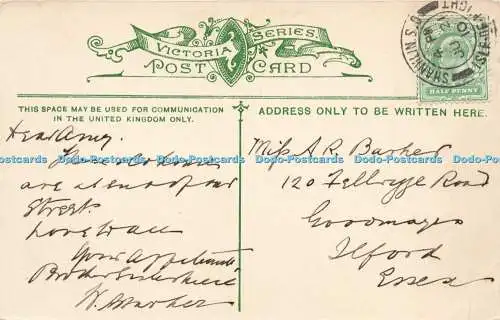 VICTORIA SERIES.
POST CARD
SHANKLIN S.O.
ISLE OF WIGHT
HALF PENNY
THIS SPACE MAY BE USED FOR COMMUNICATION
IN THE UNITED KINGDOM ONLY.
ADDRESS ONLY TO BE WRITTEN HERE.
Dear Amy.
are at end of our
Street.
Love to all
Your Affectionate
Brother
W. Barker
Miss A R. Barker
120 Road
Goodmayes
Ilford
Essex
Dodo-Postcards Dodo-Postcards Dodo-Postcards Dodo-Postcards Dodo-Postcards